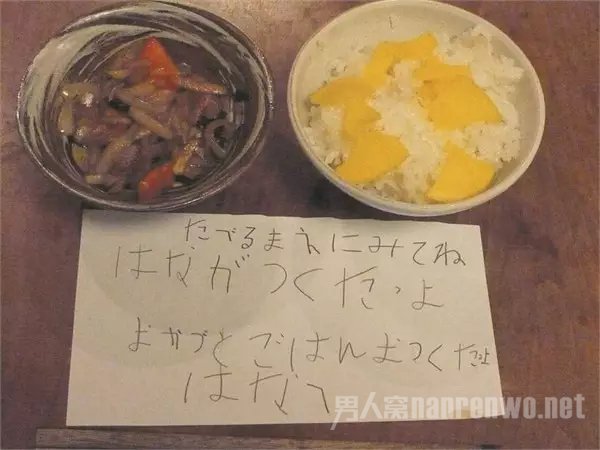 たべるまえにみてね
はながつくたっよ
おかづとごはんおつくたっよ
はなへ
男人窝naprenwo.net